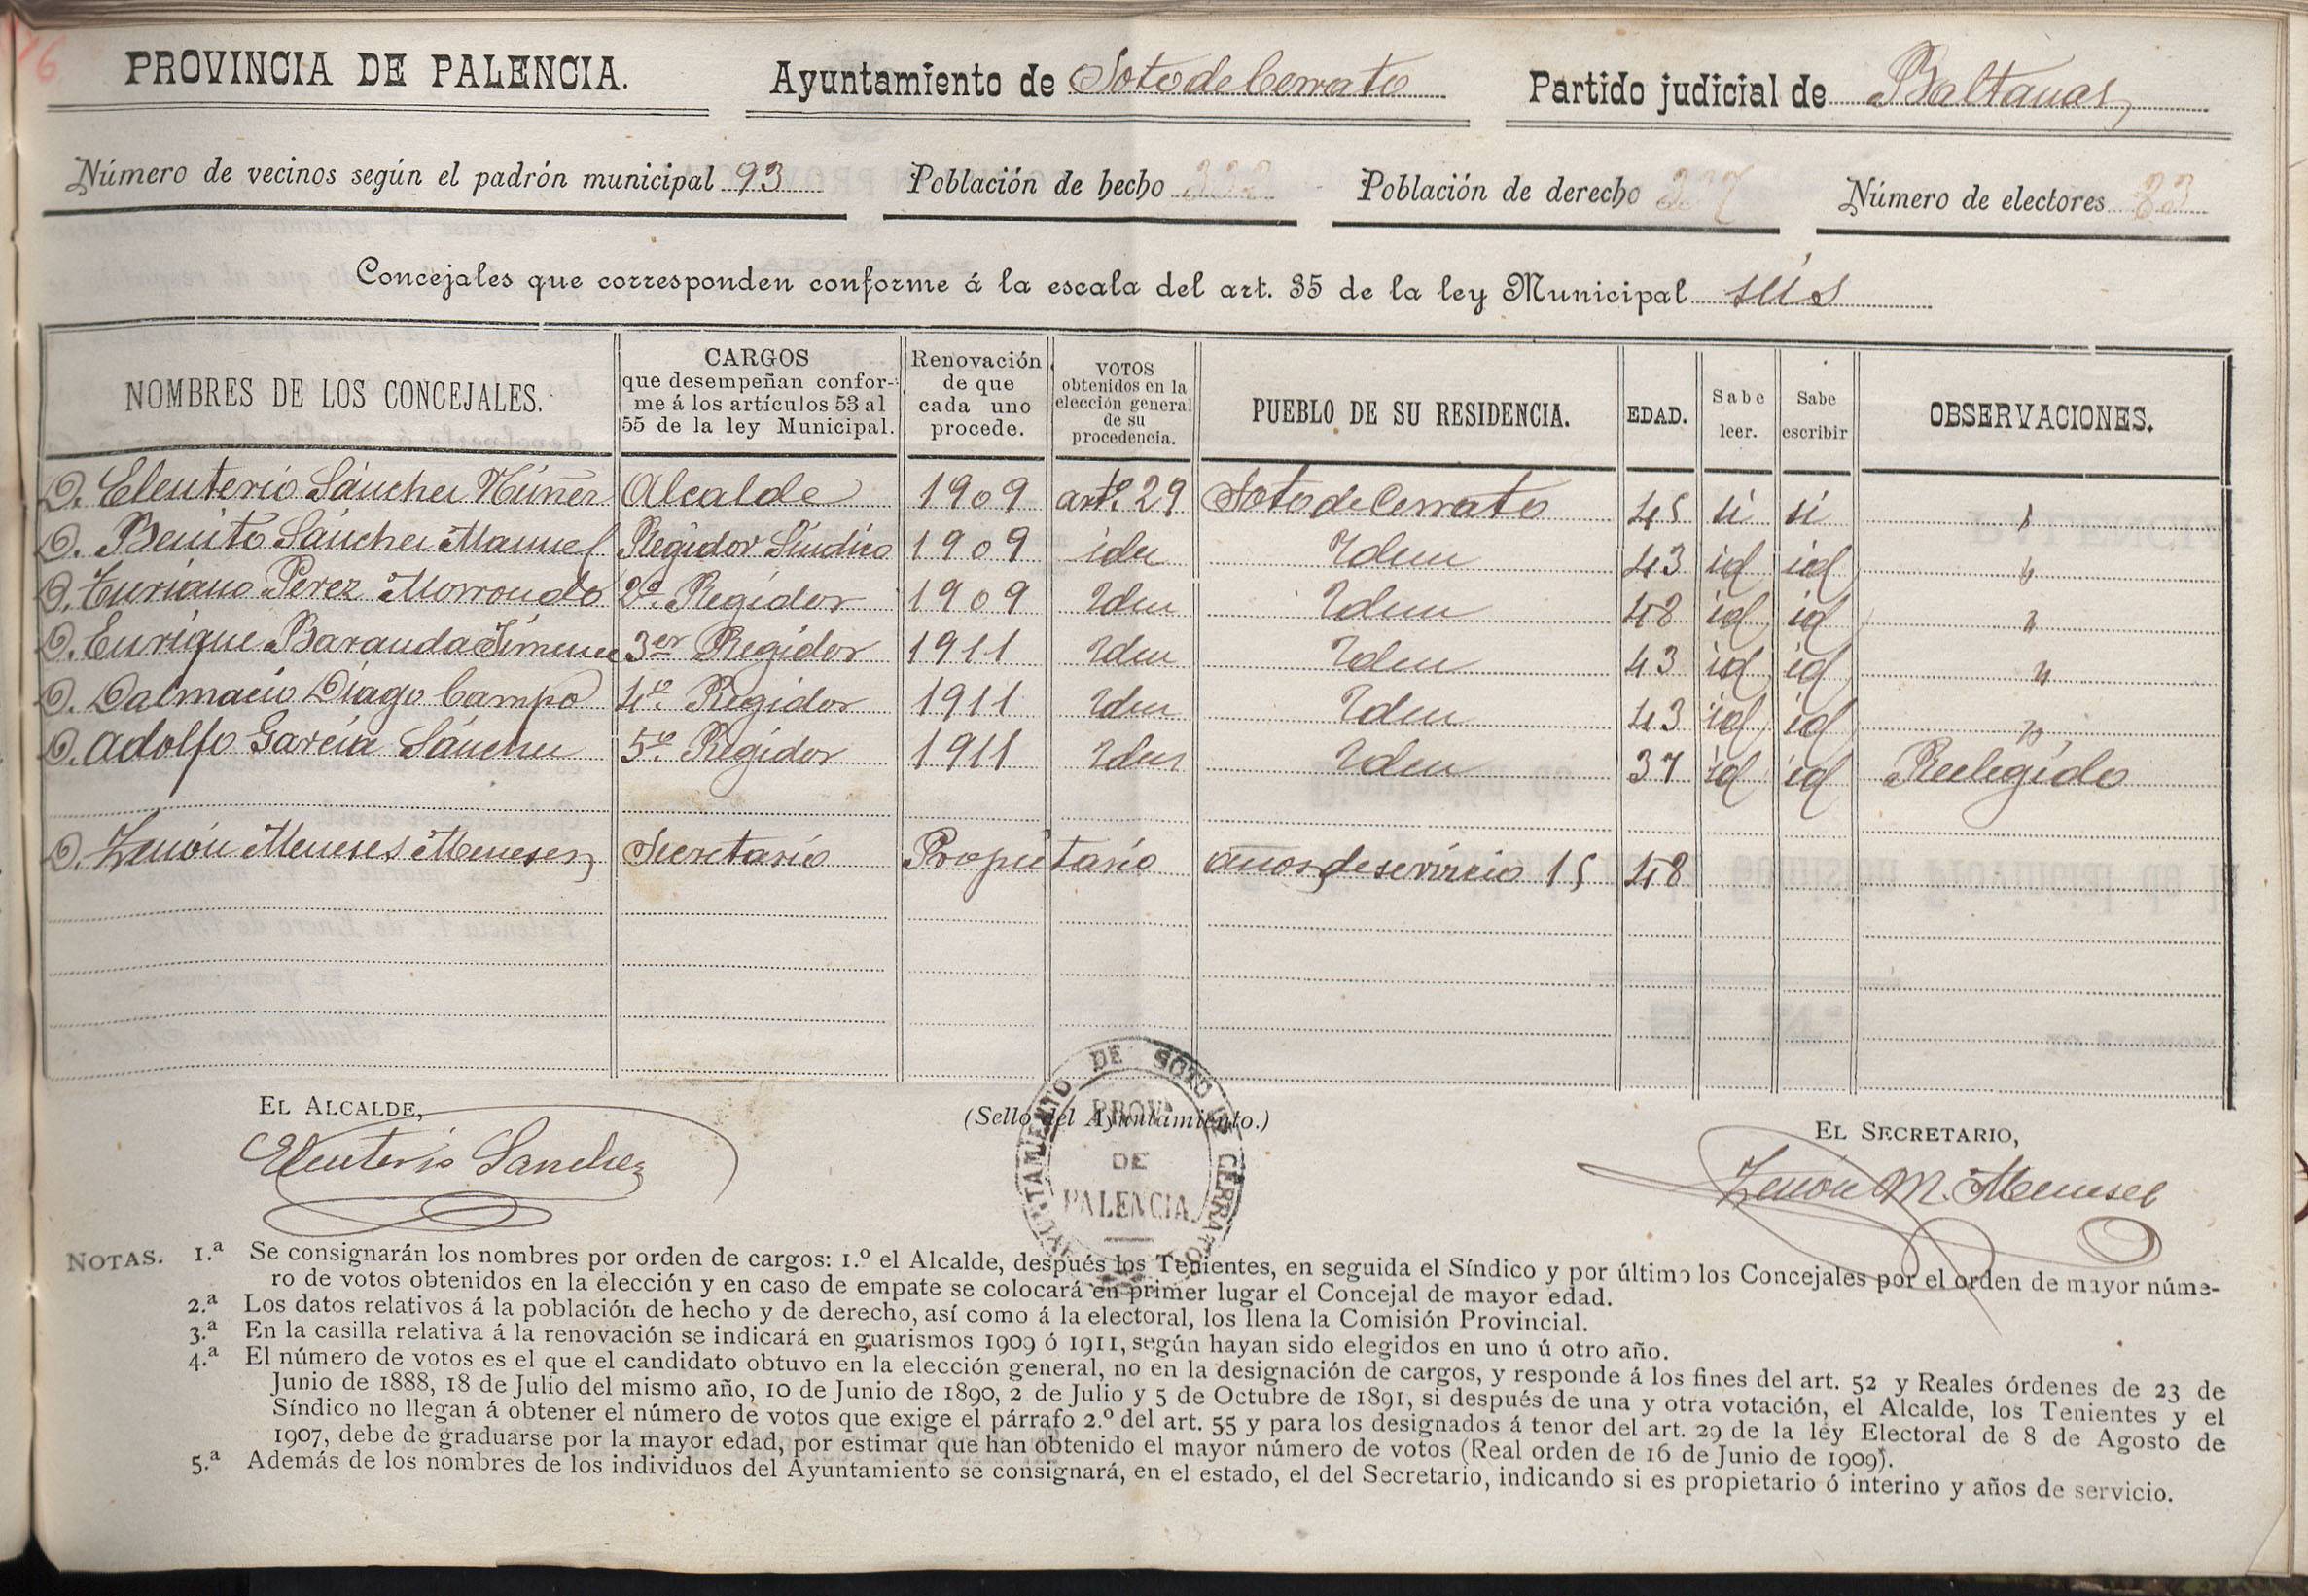 PROVINCIA DE PALENCIA. Ayuntamiento de Soto de Cerrato Partido judicial de Baltanas
Número de vecinos según el padrón municipal 93 Población de hecho 332 Población de derecho 337 Número de electores 83
Concejales que corresponden conforme á la escala del art. 35 de la ley Municipal seis
NOMBRES DE LOS CONCEJALES. CARGOS que desempeñan confor- me á los artículos 53 al 55 de la ley Municipal. Renovación de que cada uno procede. VOTOS obtenidos en la elección general de su procedencia. PUEBLO DE SU RESIDENCIA. EDAD. Sabe leer. Sabe escribir OBSERVACIONES.
D. Eleuterio Sánchez Núñez Alcalde 1909 artº. 29 Soto de Cerrato 45 si si "
D. Benito Sánchez Manuel Regidor Síndico 1909 idem Idem 43 id id "
D. Turiano Perez Morrondo 2º. Regidor 1909 Idem Idem 48 id id "
D. Enrique Baranda Jimenez 3er Regidor 1911 Idem Idem 43 id id "
D. Dalmacio Diago Campo 4º. Regidor 1911 Idem Idem 43 id id "
D. Adolfo García Sánchez 5º. Regidor 1911 Idem Idem 37 id id Reelegido
D. Zenón Meneses Meneses Secretario Propietario años de servicio 15 48
EL ALCALDE,
Eleuterio Sanchez
(Sello del Ayuntamiento.)
AYUNTAMIENTO DE SOTO DE CERRATO
PROVª
DE
PALENCIA
EL SECRETARIO,
Zenón M. Meneses
NOTAS. 1.ª Se consignarán los nombres por orden de cargos: 1.º el Alcalde, después los Tenientes, en seguida el Síndico y por último los Concejales por el orden de mayor núme-
ro de votos obtenidos en la elección y en caso de empate se colocará en primer lugar el Concejal de mayor edad.
2.ª Los datos relativos á la población de hecho y de derecho, así como á la electoral, los llena la Comisión Provincial.
3.ª En la casilla relativa á la renovación se indicará en guarismos 1909 ó 1911, según hayan sido elegidos en uno ú otro año.
4.ª El número de votos es el que el candidato obtuvo en la elección general, no en la designación de cargos, y responde á los fines del art. 52 y Reales órdenes de 23 de
Junio de 1888, 18 de Julio del mismo año, 10 de Junio de 1890, 2 de Julio y 5 de Octubre de 1891, si después de una y otra votación, el Alcalde, los Tenientes y el
Síndico no llegan á obtener el número de votos que exige el párrafo 2.º del art. 55 y para los designados á tenor del art. 29 de la ley Electoral de 8 de Agosto de
1907, debe de graduarse por la mayor edad, por estimar que han obtenido el mayor número de votos (Real orden de 16 de Junio de 1909).
5.ª Además de los nombres de los individuos del Ayuntamiento se consignará, en el estado, el del Secretario, indicando si es propietario ó interino y años de servicio.